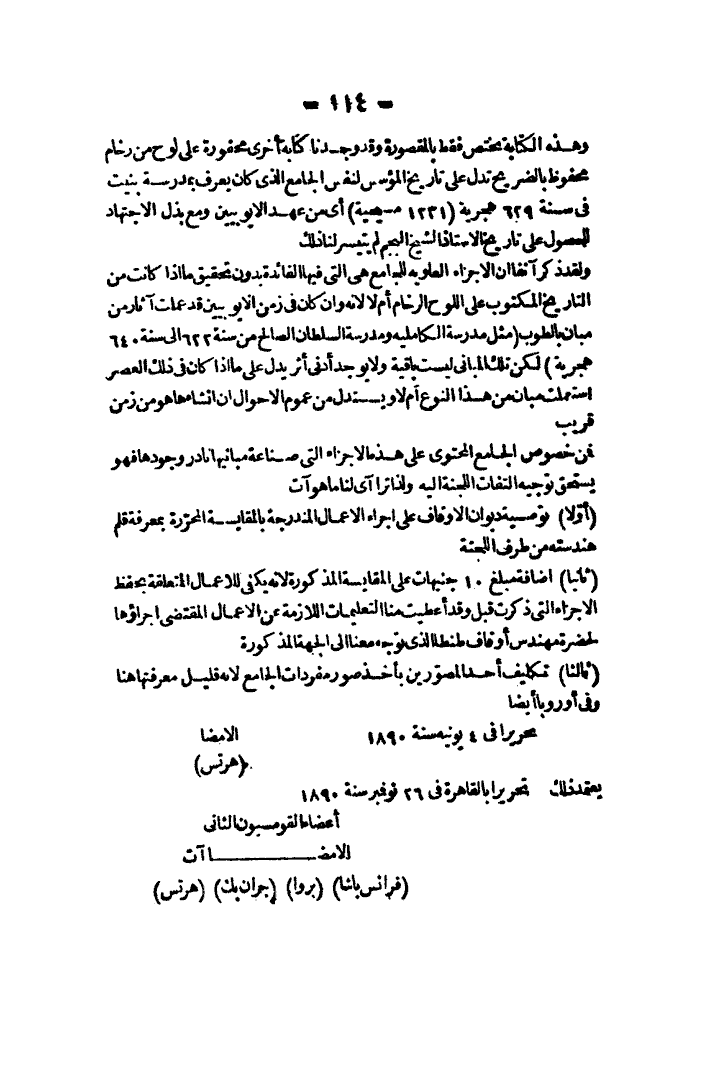 - ١١٤ -
وهذه الكتابة تختص فقط بالمقصورة وقد وجدنا كتابه أخرى محفورة على لوح من رخام
محفوظ بالضريح تدل على تاريخ المؤسس لنفس الجامع الذى كان يعرف بمدرسة بنيت
فى سنة ٦٢٩ هجرية (١٢٣١ مسيحية) أى من عهد الايوبيين ومع بذل الاجتهاد
للحصول على تاريخ الاستاذ الشيخ البجم لم يتيسر لنا ذلك
ولقد ذكر آنفا ان الاجزاء العلويه للجامع هى التى فيها الفائدة بدون تحقيق ما اذا كانت من
التاريخ المكتوب على اللوح الرخام أم لا لانه وان كان فى زمن الايوبيين قد عملت آثار من
مبان بالطوب (مثل مدرسة الكامليه ومدرسة السلطان الصالح من سنة ٦٢٢ الى سنة ٦٤٠
هجرية) لكن تلك المبانى ليست باقية ولا يوجد أدنى أثر يدل على ما اذا كان فى ذلك العصر
استعملت مبان من هذا النوع أم لا ويستدل من عموم الاحوال ان انشاءها هو من زمن
قريب
فمن خصوص الجامع المحتوى على هذه الاجزاء التى صناعة مبانيها نادر وجودها فهو
يستحق توجيه التفات اللجنة اليه ولذا تراآى لنا ما هو آت
(أولا) توصية ديوان الاوقاف على اجراء الاعمال المندرجة بالمقايسة المحررة بمعرفة قلم
هندسته من طرف اللجنة
(ثانيا) اضافة مبلغ ١٠ جنيهات على المقايسة المذكورة لانه يكفى للاعمال المتعلقة بحفظ
الاجزاء التى ذكرت قبل وقد أعطيت منا التعليمات اللازمة عن الاعمال المقتضى اجراؤها
لحضرة مهندس أوقاف طنطا الذى توجه معنا الى الجهة المذكورة
(ثالثا) تكليف أحد المصورين بأخذ صور مفردات الجامع لانه قليل معرفتها هنا
وفى أوروبا أيضا
تحريرا فى ٤ يونيه سنة ١٨٩٠ الامضا
(هرتس)
يعتمد ذلك تحريرا بالقاهرة فى ٢٦ نوفمبر سنة ١٨٩٠
أعضاء القومسيون الثانى
الامضاآت
(فرانس باشا) (بروا) (جران بك) (هرتس)